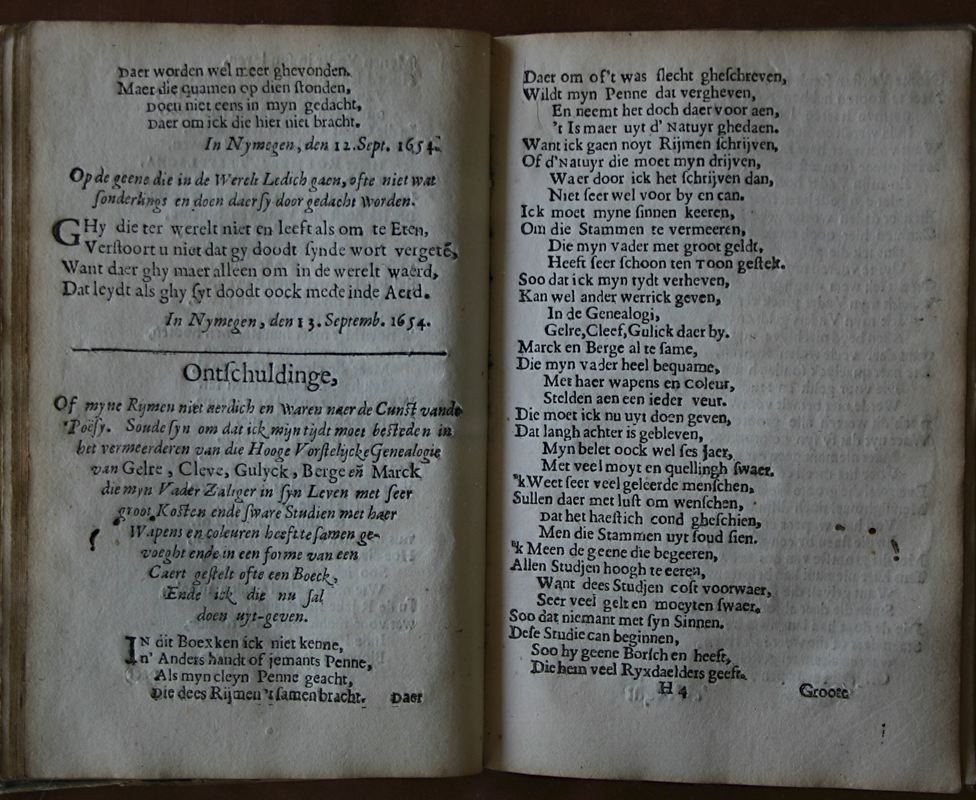 Daer worden wel meer ghevonden.
Maer die quamen op dien ſtonden,
Doen niet eens in myn gedacht,
Daer om ick die hier niet bracht.
In Nymegen, den 12. Sept. 1654.
Op de geene die in de Werelt Ledich gaen, ofte niet wat
ſonderlings en doen daer ſy door gedacht Worden.
GHy die ter werelt niet en leeft als om te Eten,
Verſtoort u niet dat gy doodt ſynde wort vergetē,
Want daer ghy maer alleen om in de werelt waerd,
Dat leydt als ghy ſyt doodt oock mede inde Aerd.
In Nymegen, den 13. Septemb. 1654.
Ontſchuldinge,
Of myne Rymen niet aerdich en Waren naer de Cunſt vande
Poëſy. Soude ſyn om dat ick mijn tijdt moet beſteden in
het vermeerderen van die Hooge Vorſtelijcke Genealogie
van Gelre, Cleve, Gulyck, Berge eñ Marck
die myn Vader Zaliger in ſyn Leven met ſeer
groot Koſten ende ſware Studien met haer
Wapens en coleuren heeft te ſamen ge-
voeght ende in een forme van een
Caert geſtelt ofte een Boeck,
Ende ick die nu ſal
doen uyt-geven.
IN dit Boexken ick niet kenne,
n' Anders handt of jemants Penne,
Als myn cleyn Penne geacht,
Die dees Rijmen 't ſamen bracht.
Daer
Daer om of't was ſlecht gheſchreven,
Wildt myn Penne dat vergheven,
En neemt het doch daer voor aen,
't Is maer uyt d' Natuyr ghedaen.
Want ick gaen noyt Rijmen ſchrijven,
Of d'Natuyr die moet myn drijven,
Waer door ick het ſchrijven dan,
Niet ſeer wel voor by en can.
Ick moet myne ſinnen keeren,
Om die Stammen te vermeeren,
Die myn vader met groot geldt,
Heeft ſeer ſchoon ten Toon geſtelt.
Soo dat ick myn tydt verheven,
Kan wel ander werrick geven,
In de Genealogi,
Gelre, Cleef, Gulick daer by.
Marck en Berge al te ſame,
Die myn vader heel bequame,
Met haer wapens en coleur,
Stelden aen een ieder veur.
Die moet ick nu uyt doen geven,
Dat langh achter is gebleven,
Myn belet oock wel ſes Jaer,
Met veel moyt en quellingh ſwaer.
'k Weet ſeer veel geleerde menſchen,
Sullen daer met luſt om wenſchen,
Dat het haeſtich cond gheſchien,
Men die Stammen uyt ſoud ſien.
'k Meen de geene die begeeren,
Allen Studjen hoogh te eeren,
Want dees Studjen coſt voorwaer,
Seer veel gelt en moeyten ſwaer.
Soo dat niemant met ſyn Sinnen.
Deſe Studie can beginnen,
Soo hy geene Borſch en heeft,
Die hem veel Ryxdaelders geeft.
H 4
Groote